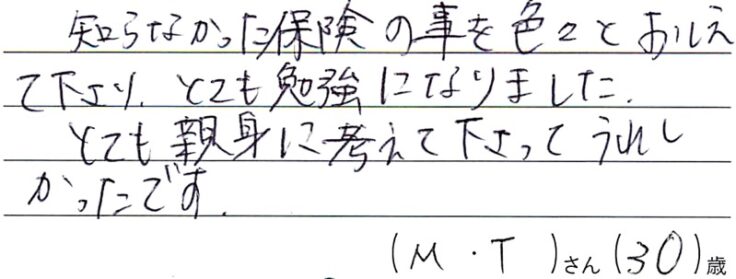 知らなかった保険の事を色々とおしえ
て下さり、とても勉強になりました。
とても親身に考えて下さってうれし
かったです。
(M・T)さん(30)歳